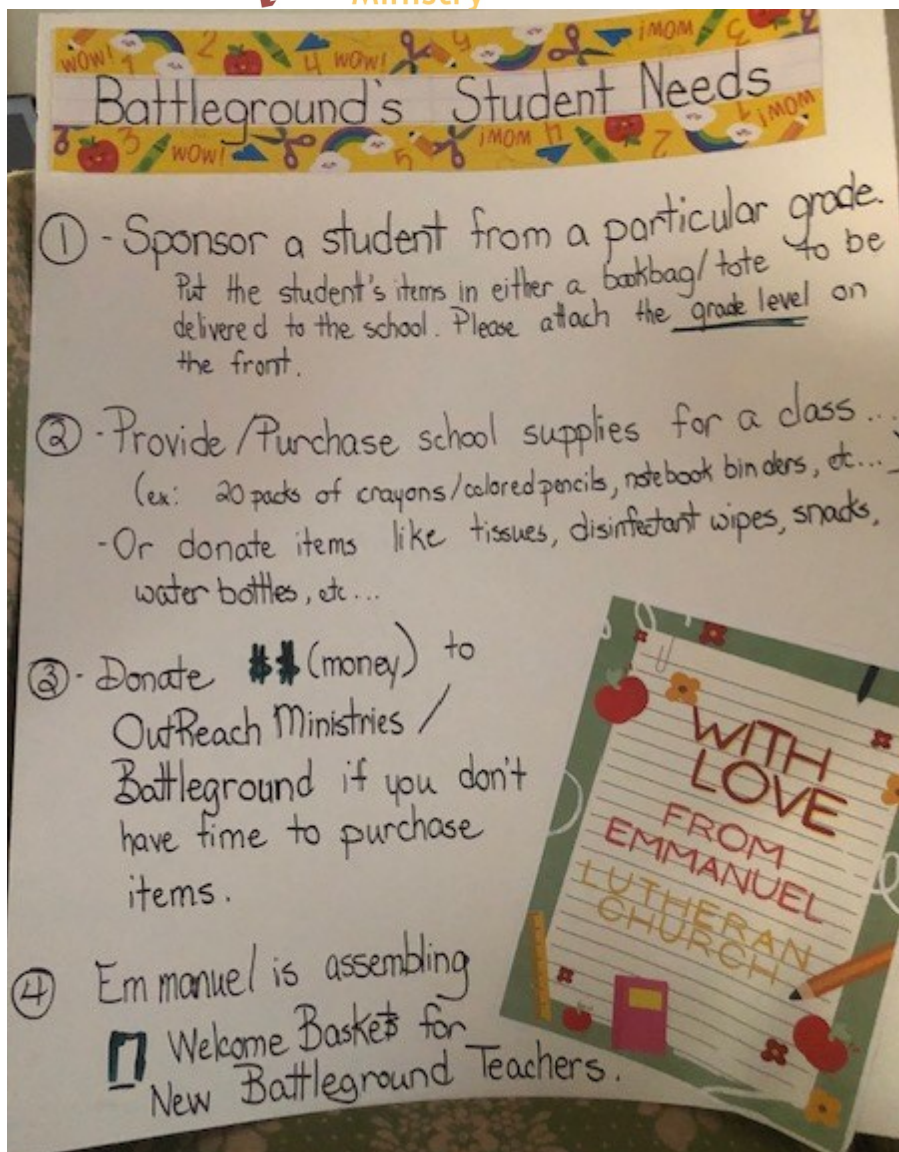 Ministry
WOW! 1 2 4 WOW! 5 ¡MOM 3 2
Battleground's Student Needs
3 3 WOW! 5 ¡MOM 4 2 1 ¡MOM
① - Sponsor a student from a particular grade.
Put the student's items in either a bookbag/tote to be
delivered to the school. Please attach the grade level on
the front.
② - Provide/Purchase school supplies for a class...
(ex: 20 packs of crayons/colored pencils, notebook binders, etc...)
- Or donate items like tissues, disinfectant wipes, snacks,
water bottles, etc...
③ - Donate $$ (money) to
OutReach Ministries /
Battleground if you don't
have time to purchase
items.
④ Emmanuel is assembling
7 Welcome Baskets for
New Battleground Teachers.
WITH
LOVE
FROM
EMMANUEL
LUTHERAN
CHURCH